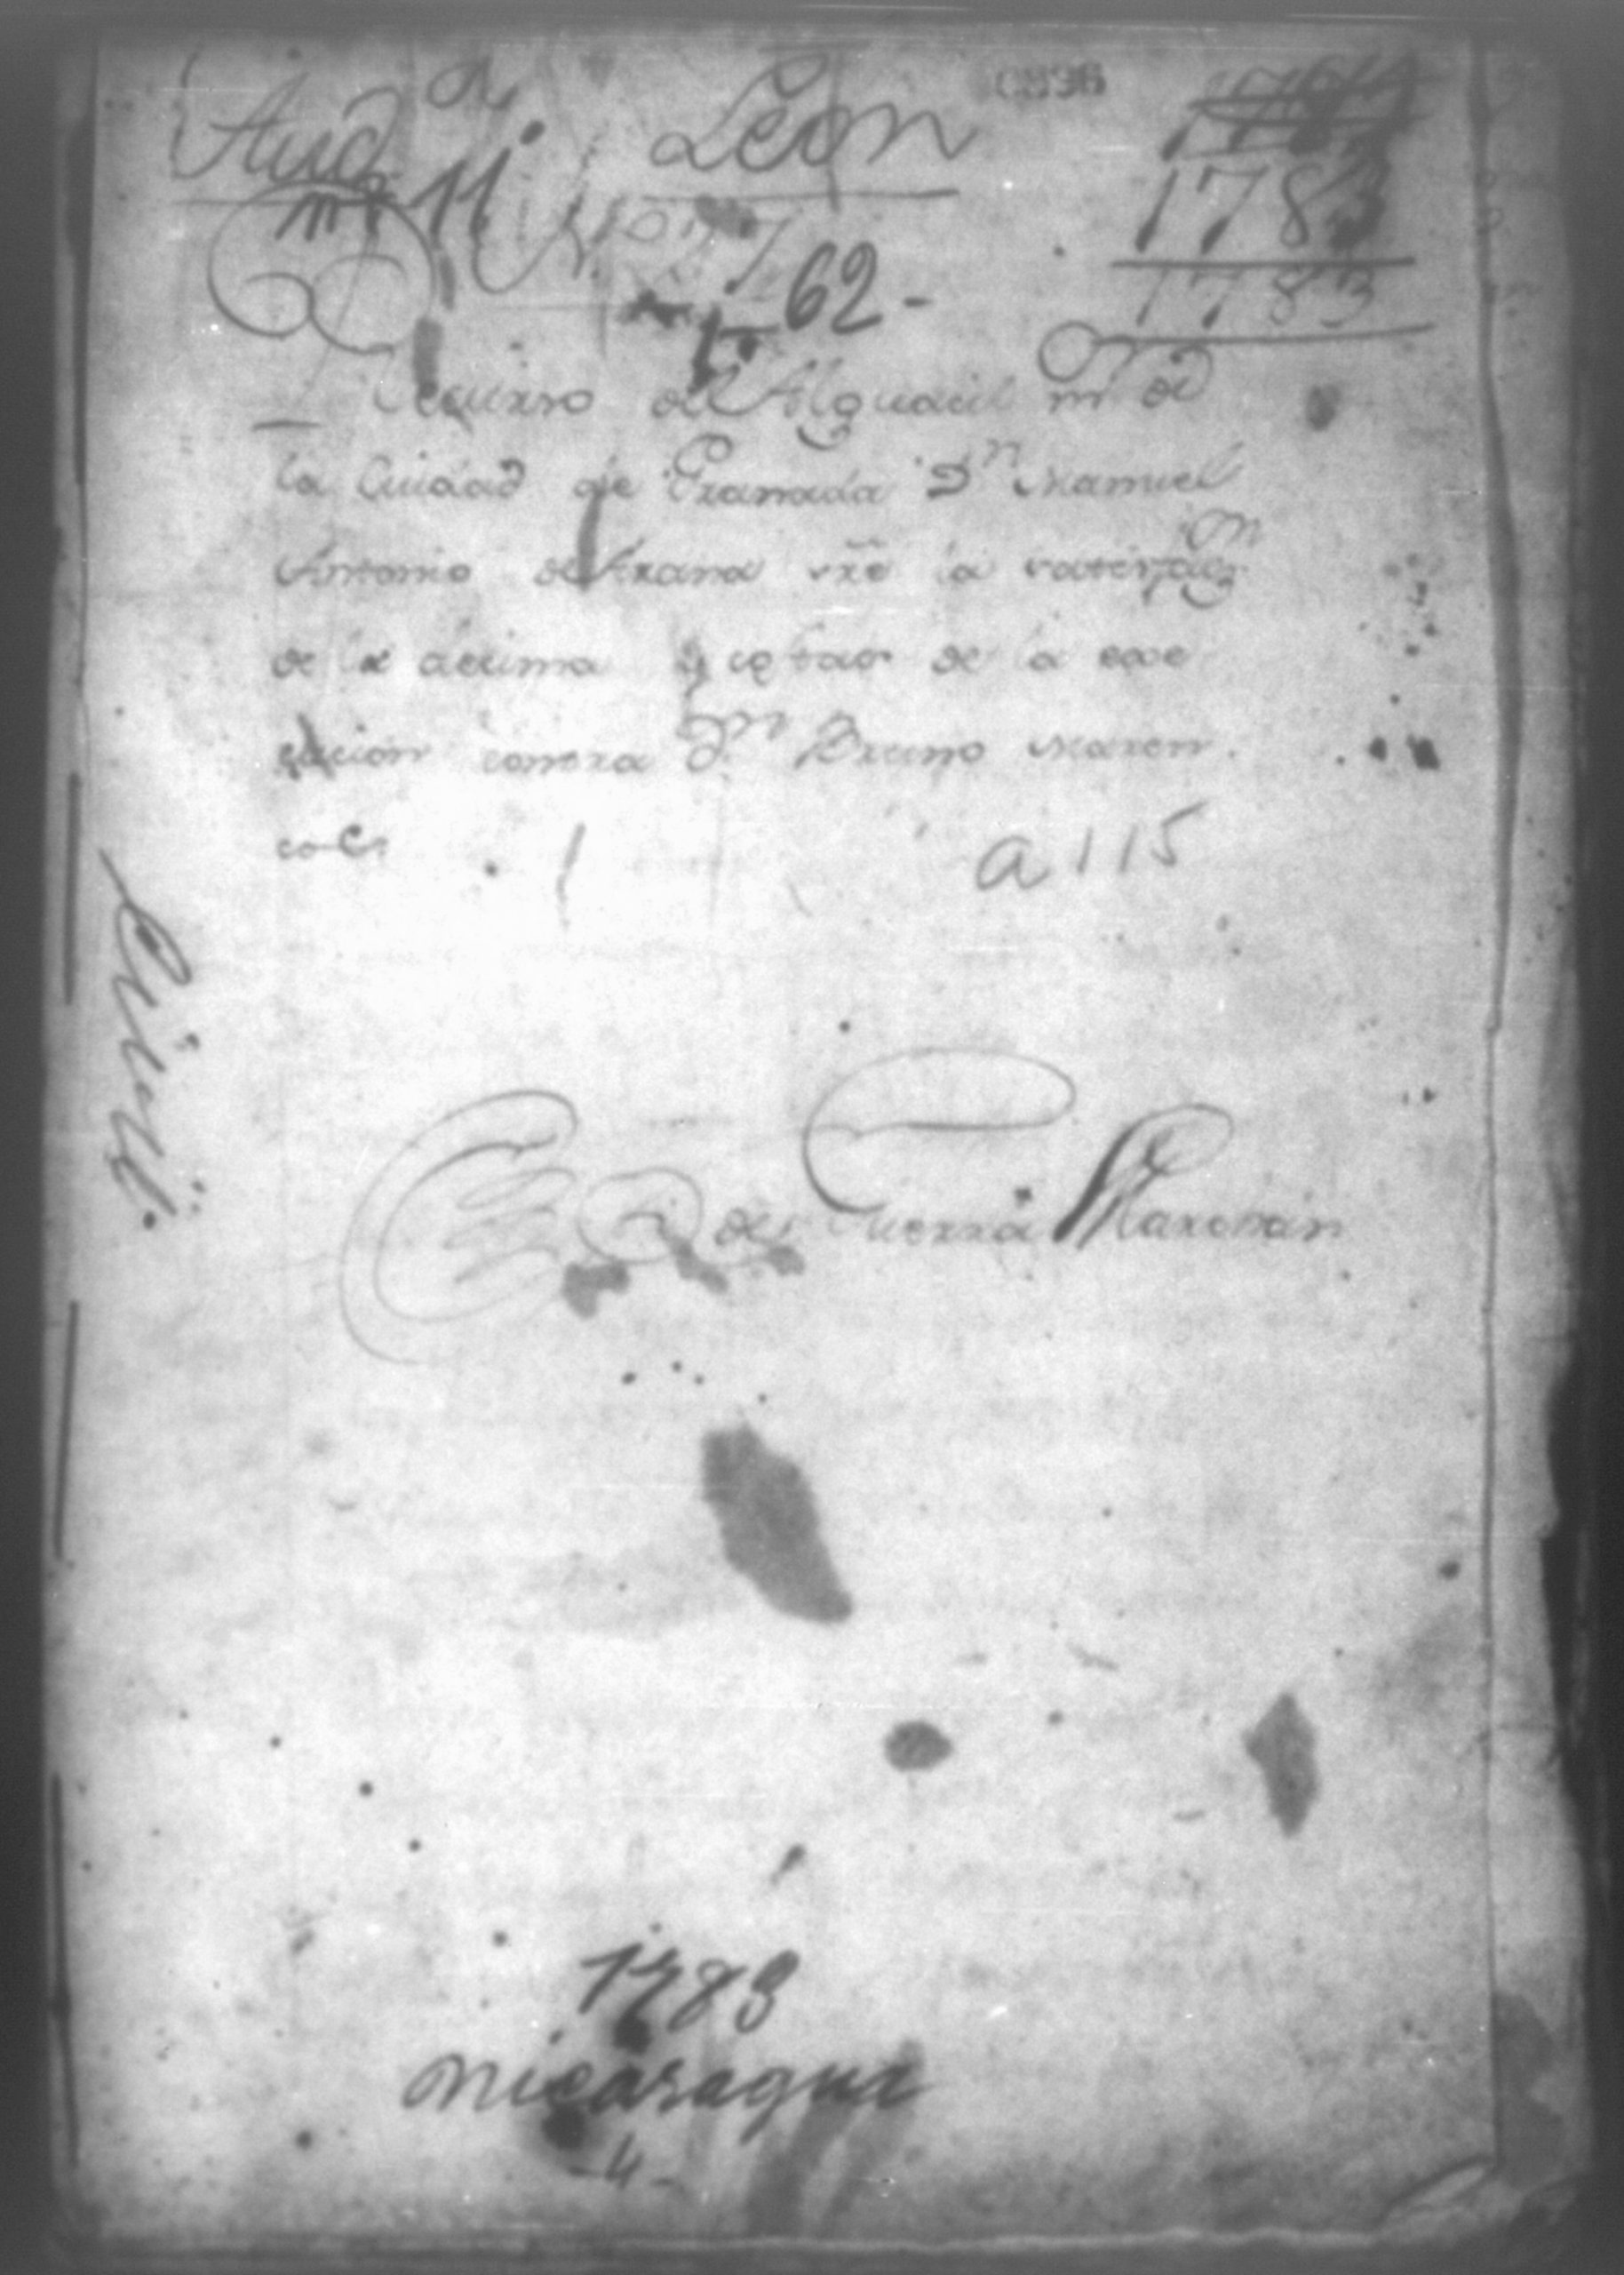 Aud.a León
1783
1783
62-
Recurso del Alguacil mr de
la Ciudad de Granada Dn Manuel
Antonio de Arana sre la satisfacn
de la decima y costas de la exe
cucion contra Dn Bruno Maren
co &.
a 115
Civil.
de Guerra Marchan
1783
Nicaragua
-4-